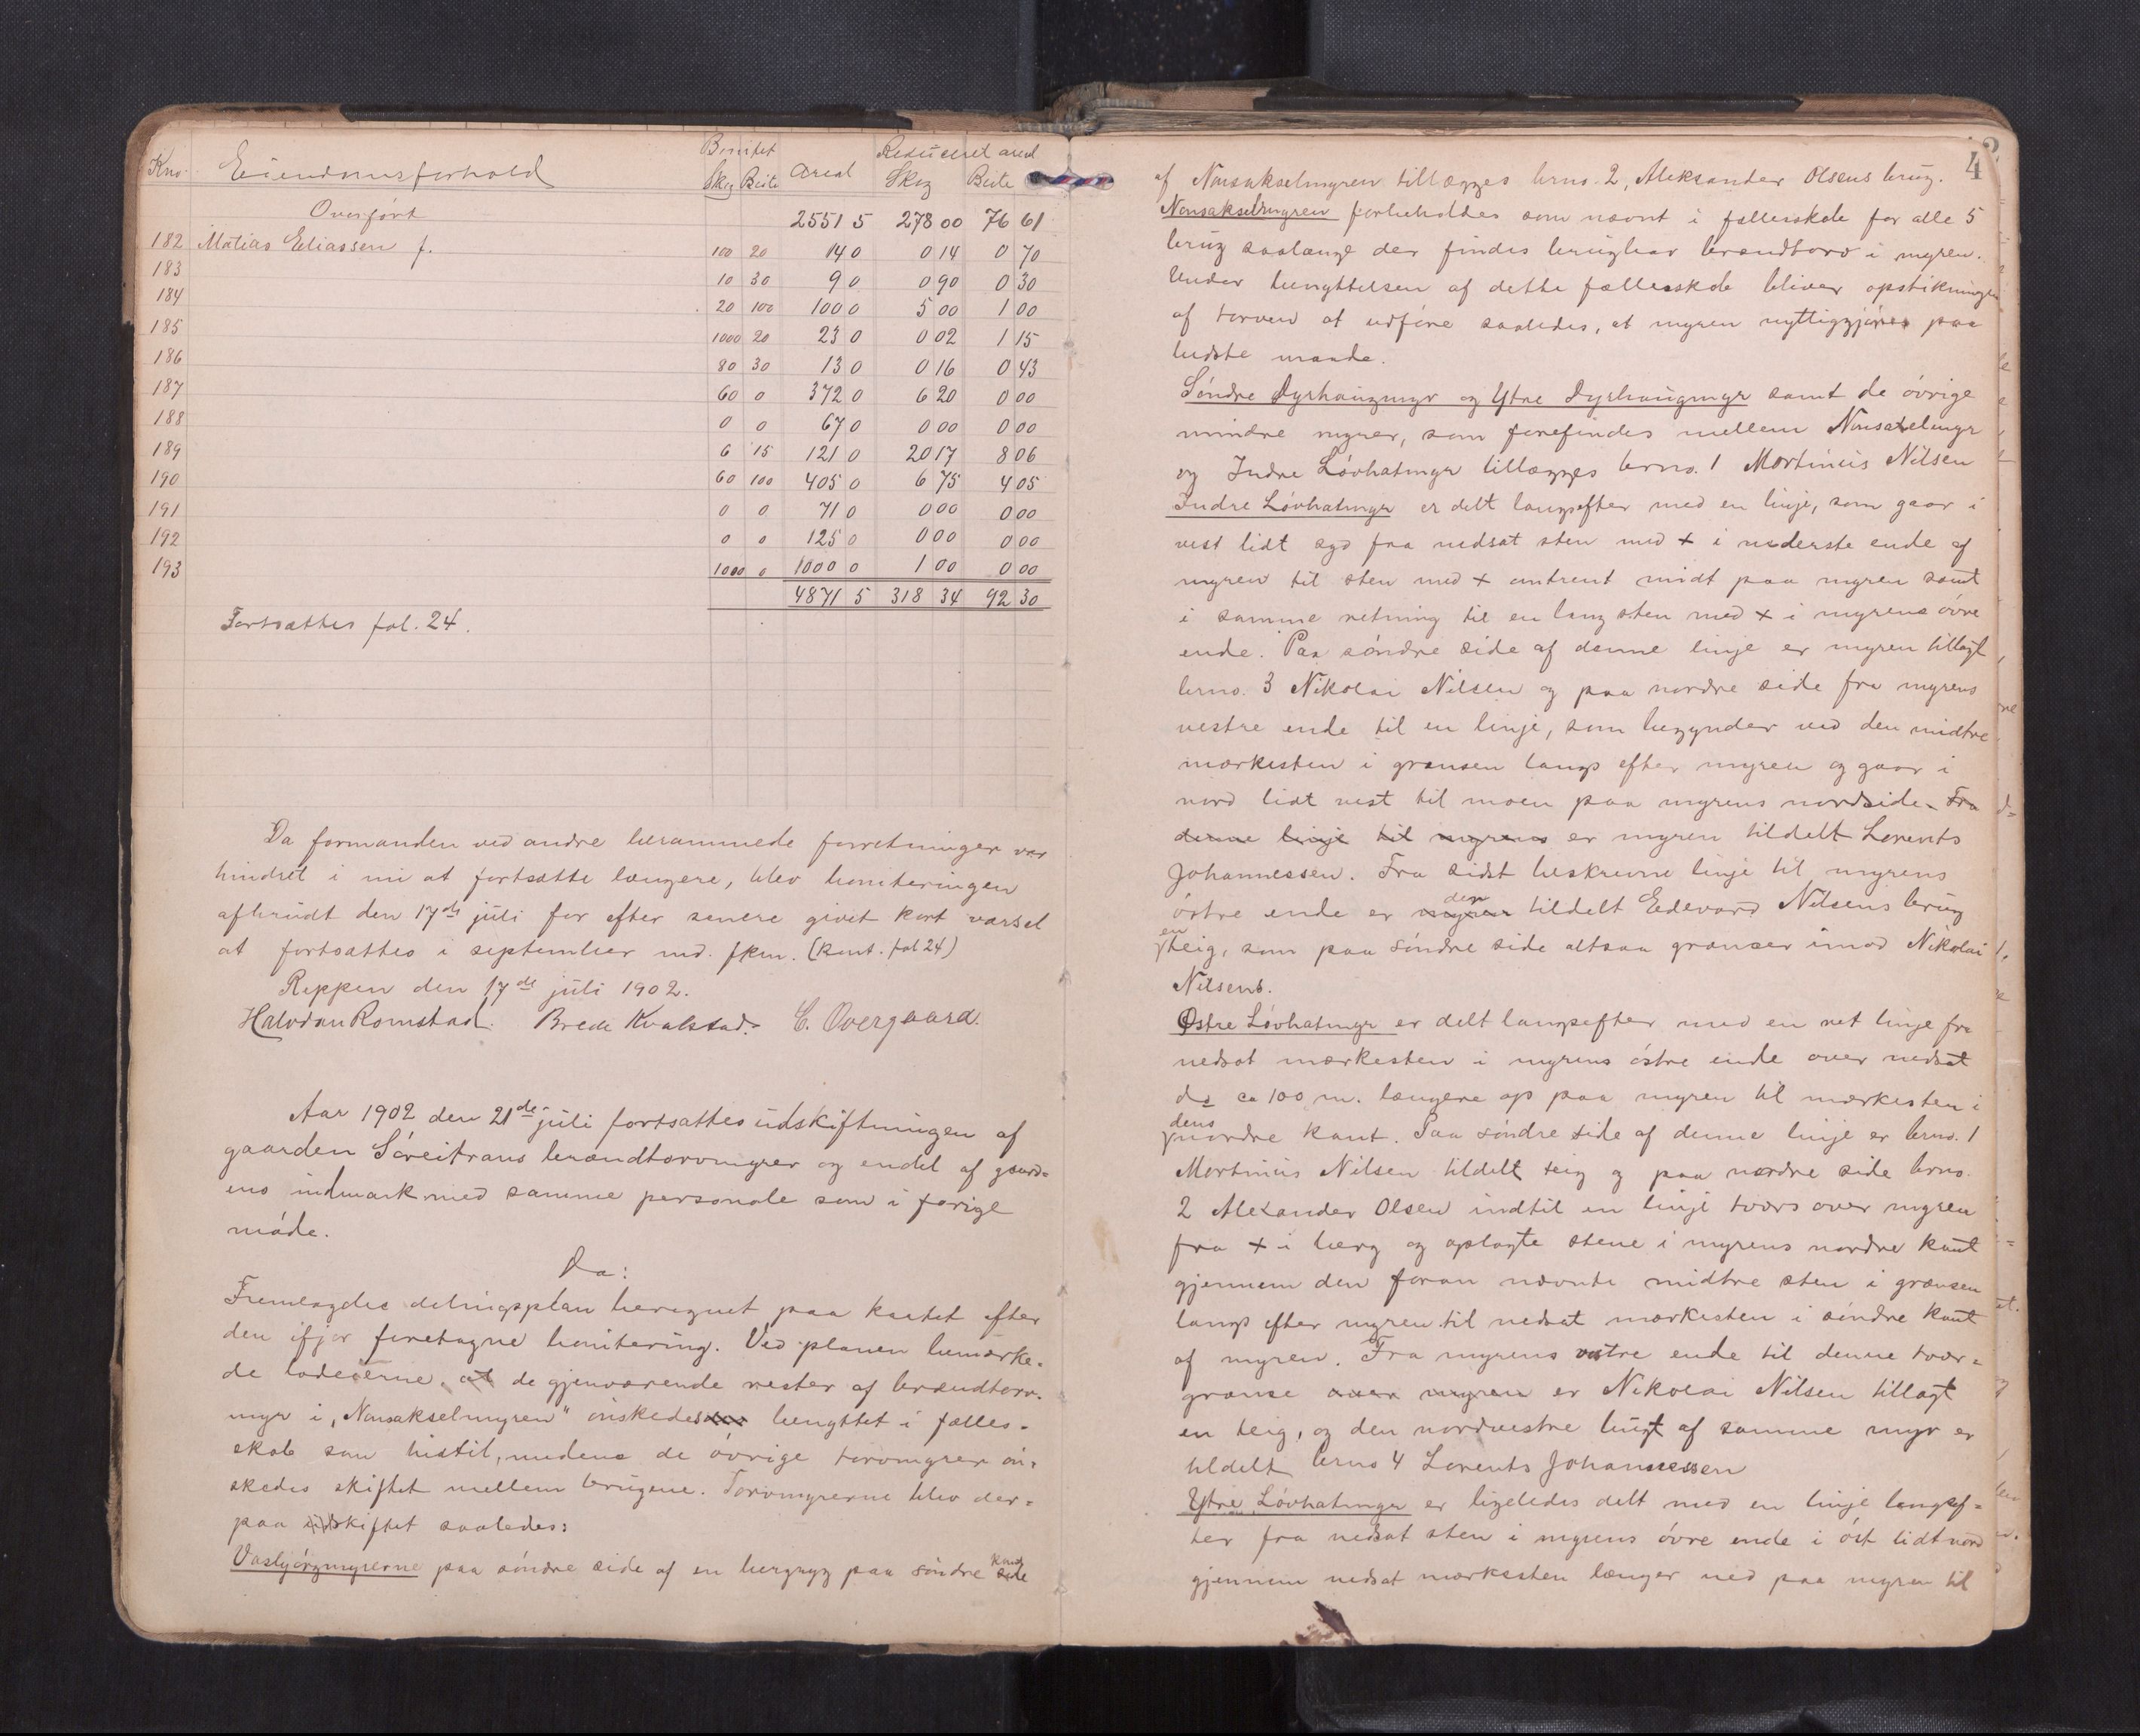 Kno. Eiendomsforhold Bonitet Areal Reduceret areal
Skog Beite Skog Beite
Overført 2551 5 278 00 76 61
182 Matias Eliassen f. 100 20 14 0 0 14 0 70
183 10 30 9 0 0 90 0 30
184 20 100 100 0 5 00 1 00
185 1000 20 23 0 0 02 1 15
186 80 30 13 0 0 16 0 43
187 60 0 372 0 6 20 0 00
188 0 0 67 0 0 00 0 00
189 6 15 121 0 20 17 8 06
190 60 100 405 0 6 75 4 05
191 0 0 71 0 0 00 0 00
192 0 0 125 0 0 00 0 00
193 1000 0 1000 0 1 00 0 00
4871 5 318 34 92 30
Fortsættes fol. 24.
Da formanden ved andre berammede forretninger var
hindret i nu at fortsætte længere, blev boniteringen
afbrudt den 17de juli for efter senere givet kort varsel
at fortsættes i september md. fkm. (kont. fol 24)
Reppen den 17de juli 1902.
Halvdan Romstad. Brede Kvalstad. C. Overgaard.
Aar 1902 den 21de juli fortsattes udskiftningen af
gaarden Sóreitrans brændtorvmyrer og endel af gaard=
ens indmark med samme personale som i forige
móde.
Da:
Fremlagdes delingsplan beregnet paa kartet efter
den ifjor foretagne bonitering. Ved planen bemærke=
de lodeierne, at de gjenværende rester af brændtorv=
myr i „Nonsakselmyren" ónskedes benyttet i fælles=
skab som hidtil, medens de óvrige torvmyrer ón=
skedes skiftet mellem brugene. Torvmyrerne blev der=
paa udskiftet saaledes:
Vasbjórgmyrerne paa sóndre side af en bergryg paa sóndre kand
42
af Nonsakselmyren tillægges brno. 2, Aleksander Olsens brug.
Nonsakselmyren forbeholdes som nævnt i fællesskab for alle 5
brug saalænge der findes brugbar brændtorv i myren.
Under benyttelsen af dette fællesskab bliver opstikningen
af torven at udføre saaledes, at myren nyttiggjóres paa
bedste maade.
Sóndre Dyrhaugmyr og Ytre Dyrhaugmyr samt de óvrige
mindre myrer, som forefindes mellem Nonsakselmyr
og Indre Lóvhatmyr tillægges brno. 1 Mortinus Nilsen
Indre Lóvhatmyr er delt langsefter med en linje, som gaar i
vest lidt syd fra nedsat sten med + i nederste ende af
myren til sten med + omtrent midt paa myren samt
i samme retning til en lang sten med + i myrens óvre
ende. Paa sóndre side af denne linje er myren tillagt
brno. 3 Nikolai Nilsen og paa nordre side fra myrens
vestre ende til en linje, som begynder ved den midtre
merkesten i grænsen langs efter myren og gaar i
nord lidt vest til moen paa myrens nordside. Fra
denne linje til myrens er myren tildelt Lorents
Johannessen. Fra sidst beskrevne linje til myrens
óstre ende er myren den tildelt Edevard Nilsens brug
en teig, som paa sóndre side altsaa grænser imod Nikolai
Nilsens.
Østre Lóvhatmyr er delt langsefter med en ret linje fra
nedsat mærkesten i myrens óstre ende over nedsat
do ca 100 m. længere op paa myren til mærkesten i
dens nordre kant. Paa sóndre side af denne linje er brno. 1
Mortinus Nilsen tildelt teig og paa nordre side brno.
2 Alexander Olsen indtil en linje tvers over myren
fra + i berg og oplagte stene i myrens nordre kant
gjennem den foran nævnte midtre sten i grænsen
langs efter myren til nedsat mærkesten i sóndre kant
af myren. Fra myrens vestre ende til denne tver=
grænse over myren er Nikolai Nilsen tillagt
en teig, og den nordvestre bugt af samme myr er
tildelt brno 4 Lorents Johannessen
Ytre Lóvhatmyr er ligeledes delt med en linje langsef=
ter fra nedsat sten i myrens óvre ende i óst lidt nord
gjennem nedsat mærkesten længer ned paa myren til